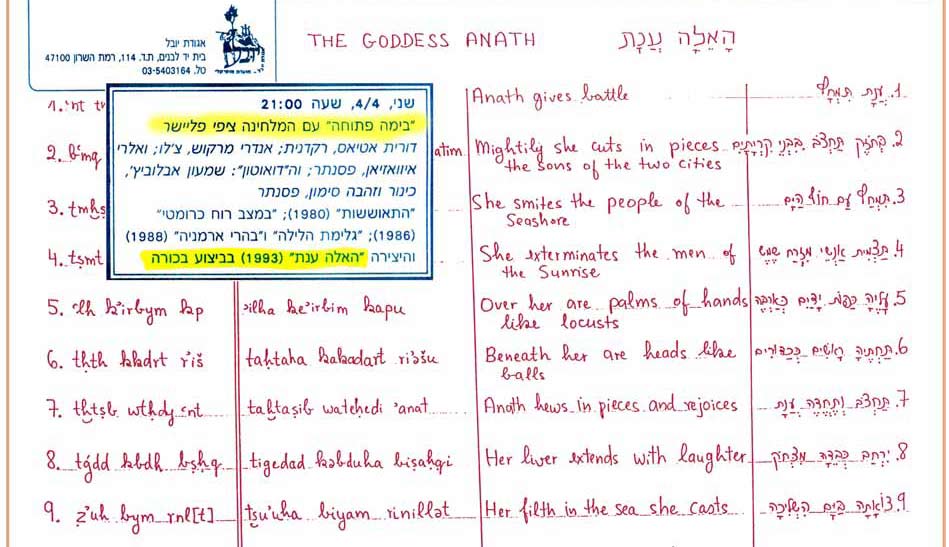 אגודת יובל
בית יד לבנים, ת.ד. 114, רמת השרון 47100
טל. 03-5403164
THE GODDESS ANATH
הָאֵלָה עֲנָת
שני, 4/4, שעה 21:00
"בימה פתוחה" עם המלחינה ציפי פליישר
דורית אטיאס, רקדנית; אנדרי מרקוש, צ'לו; ואלרי
איוואזיאן, פסנתר; וה"דואוטון": שמעון אבלוביץ',
כינור וזהבה סימון, פסנתר
"התאוששות" (1980); "במצב רוח כרומטי"
(1986); "גלימת הלילה" ו"בהרי ארמניה" (1988)
והיצירה "האלה ענת" (1993) בביצוע בכורה
1. ʿnt
Anath gives battle
1. עֲנָת תִּמְחָץ
2. bʿmq
atim
Mightily she cuts in pieces
the sons of the two cities
2. בְּחֹזֶק תַּחְצֹב בִּבְנֵי קִרְיָתַיִם
3. tmḫṣ
She smites the people of the
Seashore
3. תִּמְחָץ עַם חוֹף הַיָּם
4. tṣmt
She exterminates the men of
the Sunrise
4. תַּצְמִית אַנְשֵׁי מִזְרַח שֶׁמֶשׁ
5. ʿlh kʾirbym kp
ʿilha keʾirbim kapu
Over her are palms of hands
like locusts
5. עָלֶיהָ כַּפּוֹת יָדַיִם כָּאַרְבֶּה
6. tḥth kkdrt rʾiš
taḥtaha kakadart riʾšu
Beneath her are heads like
balls
6. תַּחְתֶּיהָ רָאשִׁים כְּכַדּוּרִים
7. tḫtṣb wtḥdy ʿnt
taḫtaṣib wateḥedi ʿanat
Anath hews in pieces and rejoices
7. תַּחְצֹב וְתֶחֱדֶה עֲנָת
8. tǵdd kbdh bṣḥq
tigedad kəbduha biṣaḥqi
Her liver extends with laughter
8. יִרְחַב כְּבֵדָהּ מִצְּחוֹק
9. ẓʾuh bym rnl[t]
tṣuʾuha biyam rinillət
Her filth in the sea she casts
9. צוֹאָתָהּ בַּיָּם הִשְׁלִיכָה